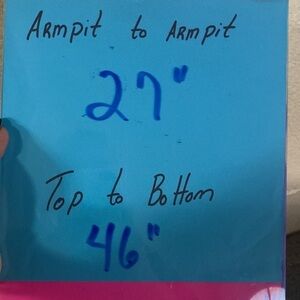 Armpit to Armpit
27"
Top to Bottom
46"